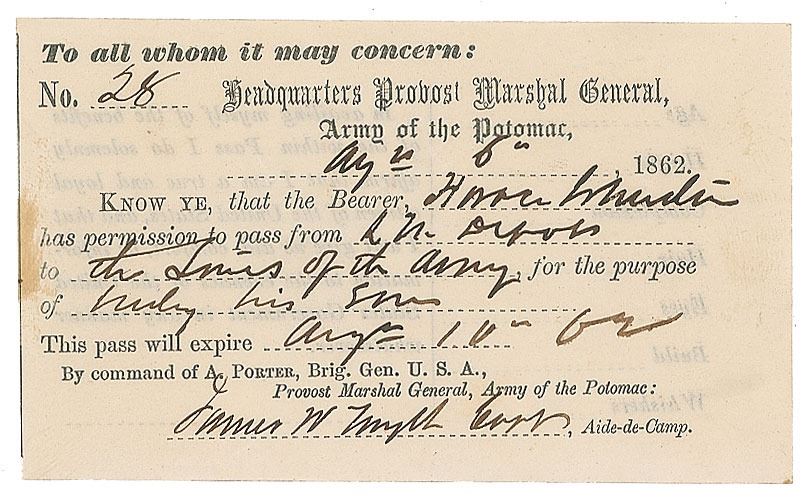 To all whom it may concern:
No. 28 Headquarters Provost Marshal General,
Army of the Potomac,
Aug 8 , 1862.
KNOW YE, that the Bearer, Horace
has permission to pass from
to the Lines of the Army, for the purpose
of his
This pass will expire Aug 10 62
By command of A. PORTER, Brig. Gen. U. S. A.,
Provost Marshal General, Army of the Potomac:
James W , Aide-de-Camp.